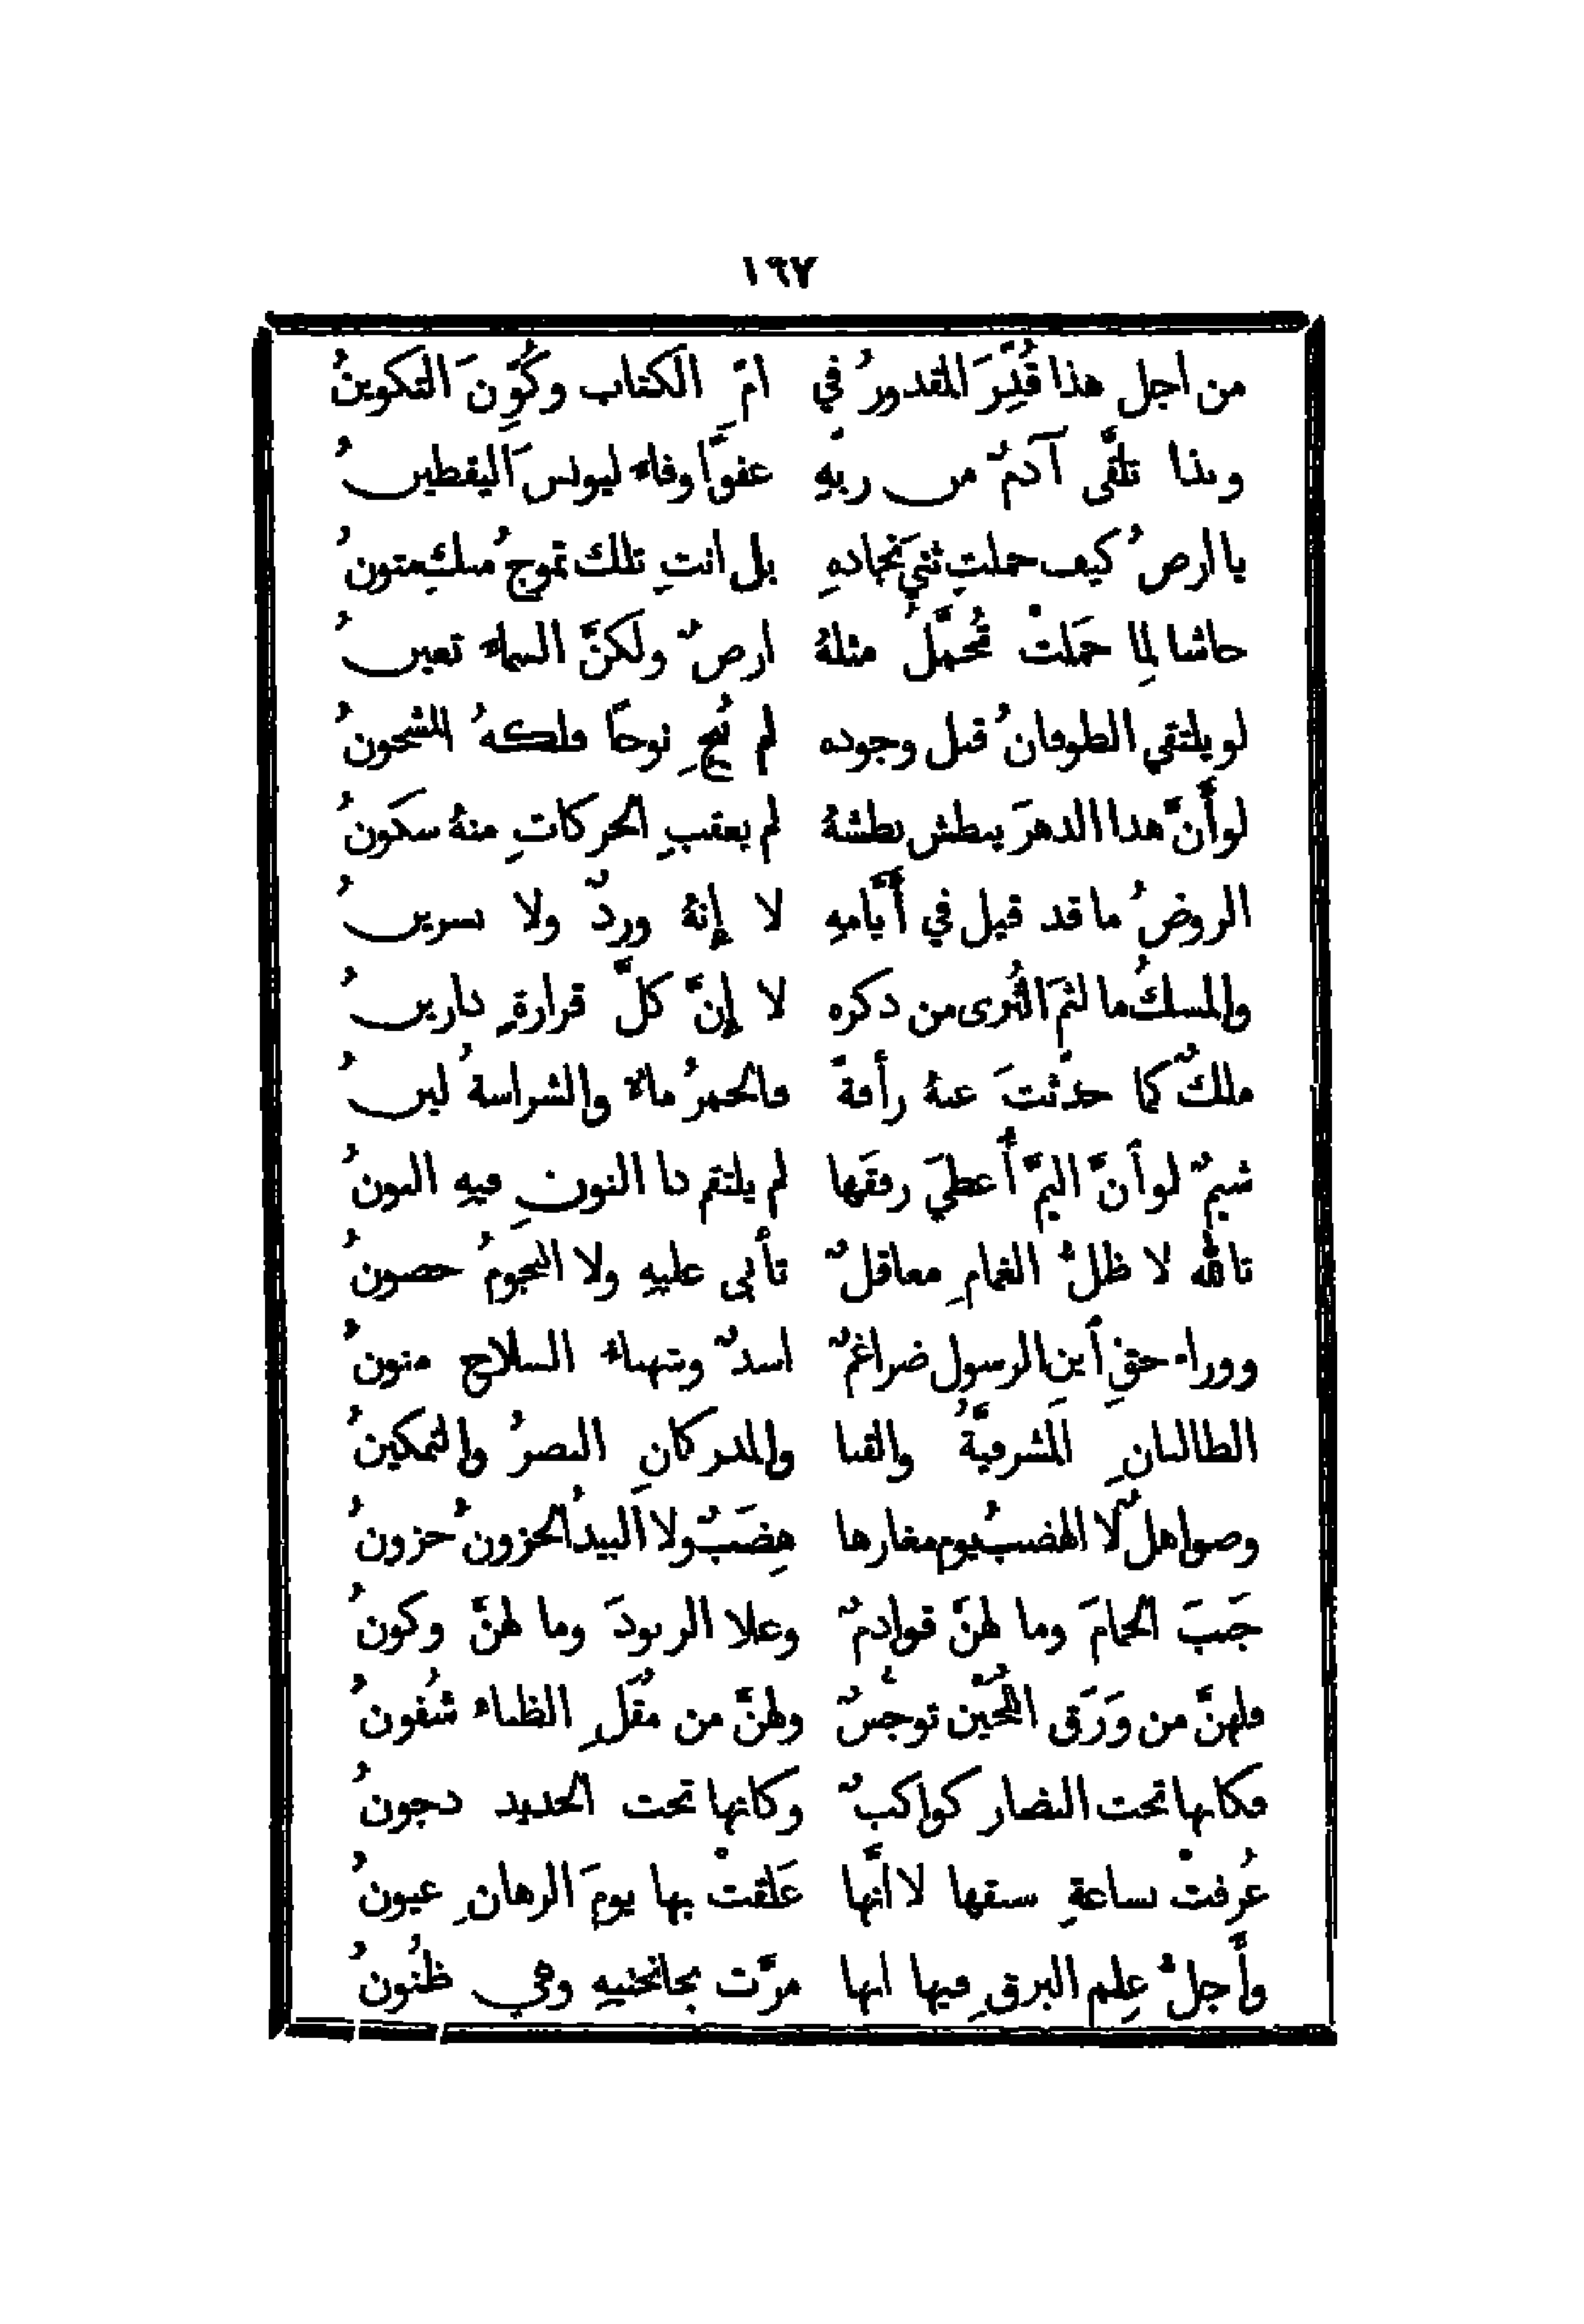 ١٦٧
من اجل هذا قُدِّرَ المقدورُ في امّ ِ الكتاب وكُوّنَ التكوينُ
وبذا تلقَّى آدمٌ من ربّهِ عفوًا وفاء ليونسَ اليقطينُ
يا ارضُ كيف حملتِ ثنيَ نجادهِ بل انتِ تلك تموجُ منكِ متونُ
حاشا لِما حمَلتْ تُحمَّلُ مثلهُ ارضٌ ولكنَّ السماء تعينُ
لو يلتقي الطوفانُ قبل وجوده لم يُنجِ نوحًا فلكهُ المشحونُ
لو أَنَّ هذا الدهرَ يبطش بطشهُ لم يعقبِ الحركاتِ منهُ سكونُ
الروضُ ما قد قيل في أَيَّامهِ لا إِنهُ وردٌ ولا نسرينُ
والمسكُ ما لثمَ الثُرى من ذكره لا إِنَّ كلَّ قرارةٍ دارينُ
ملكٌ كما حدّثتَ عنهُ رأفةً فالخمرُ ماءٌ والشراسةُ لينُ
شيمٌ لو أنَّ اليمَّ أُعطيَ رفقَها لم يلتقم ذا النونِ فيهِ النونُ
تالله لا ظللُ الغمامِ معاقلٌ تأبى عليهِ ولا النجومُ حصونُ
ووراء حقِ أبنِ الرسول ضراغمٌ اسدٌ وشهباء السلاح منونُ
الطالبانِ المشرفيَّةُ والقنا والمدركانِ النصرُ والتمكينُ
وصواهلٌ لا الهضبُ يوم مغارها هِضَبٌ ولا البيدُ الحزونُ حزونُ
جَنبَ الحمامَ وما لهنَّ قوادمٌ وعلا الربودَ وما لهنَّ وكونُ
فلهنَّ من وَرَق اللُّجَين توجسٌ ولهنَّ من مُقَلِ الظباء شُفونُ
فكانها تحت النضار كواكبٌ وكانها تحت الحديد دجونُ
عُرفتْ بساعةِ سبقها لا انَّها عَلقتْ بها يومَ الرهانِ عيونُ
وأَجلُّ عِلم البرقِ فيها انها مرَّت بجانحتيهِ وهي ظنُونُ